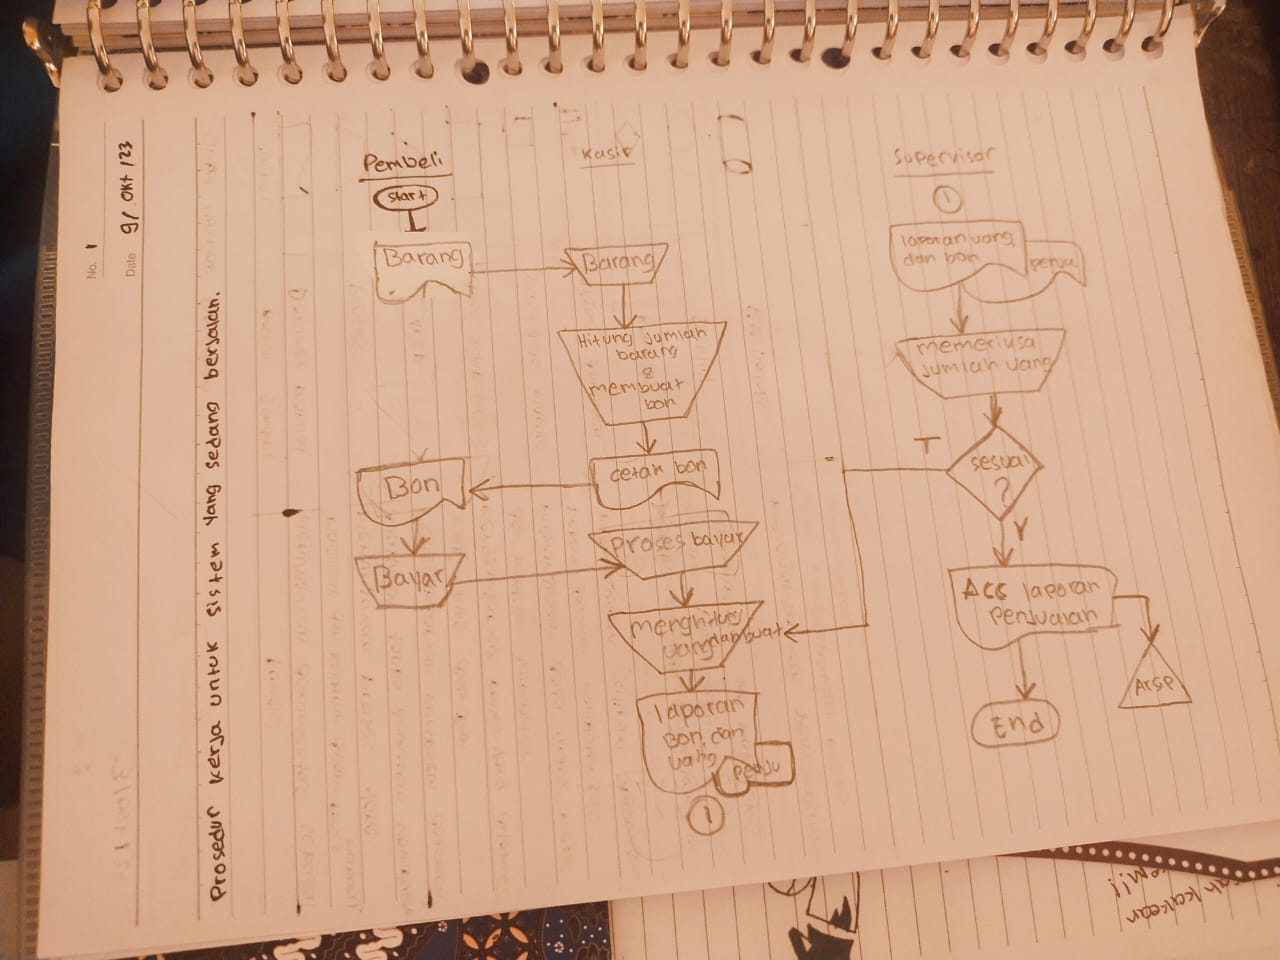 No. 1
Date 9/ Okt /23
Prosedur kerja untuk sistem yang sedang berjalan.
Pembeli
Start
Barang
Bon
Bayar
Kasir
Barang
Hitung jumlah
barang
&
membuat
bon
cetak bon
proses bayar
menghitung
uang
buat
laporan
Bon, dan
uang
penju
1
Supervisor
1
laporan uang
dan bon
penju
memeriksa
jumlah uang
sesuai
?
T
Y
Acc laporan
penjualan
Arsip
End